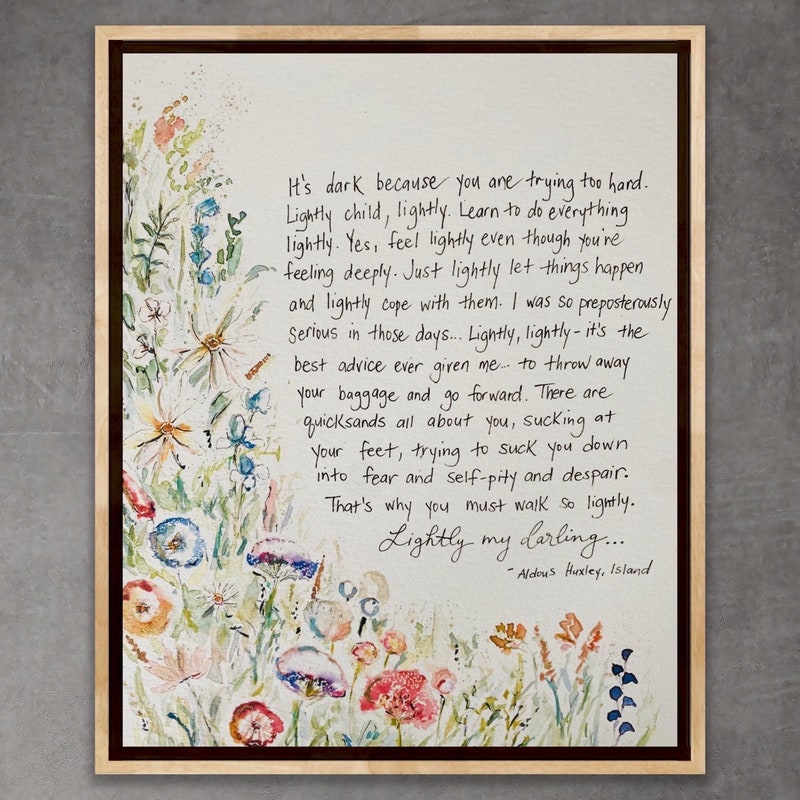 It's dark because you are trying too hard.
Lightly child, lightly. Learn to do everything
lightly. Yes, feel lightly even though you're
feeling deeply. Just lightly let things happen
and lightly cope with them. I was so preposterously
serious in those days... Lightly, lightly - it's the
best advice ever given me... to throw away
your baggage and go forward. There are
quicksands all about you, sucking at
your feet, trying to suck you down
into fear and self-pity and despair.
That's why you must walk so lightly.
Lightly my darling...
- Aldous Huxley, Island